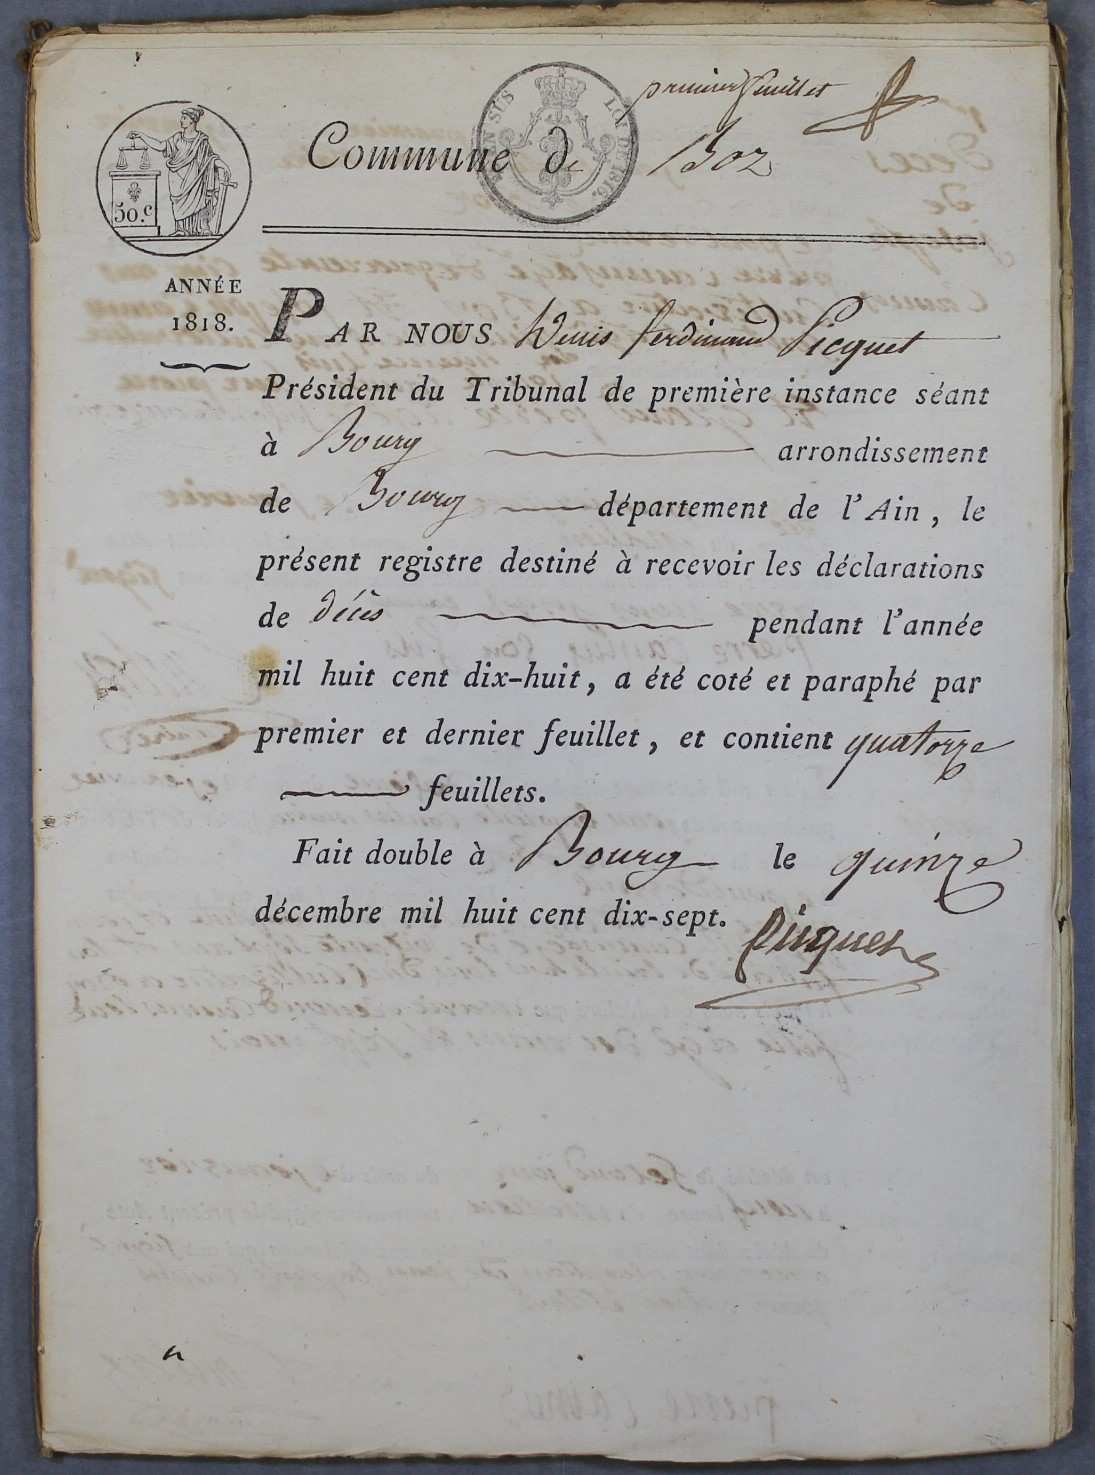 premier feuillet
EN SUS
LOI DE 1816.
Commune de Boz
50.c
ANNÉE
1818.
PAR NOUS Denis ferdinand Picquet
Président du Tribunal de première instance séant
à Bourg arrondissement
de Bourg département de l'Ain, le
présent registre destiné à recevoir les déclarations
de décès pendant l'année
mil huit cent dix-huit, a été coté et paraphé par
premier et dernier feuillet, et contient quatorze
feuillets.
Fait double à Bourg le quinze
décembre mil huit cent dix-sept.
Picquet